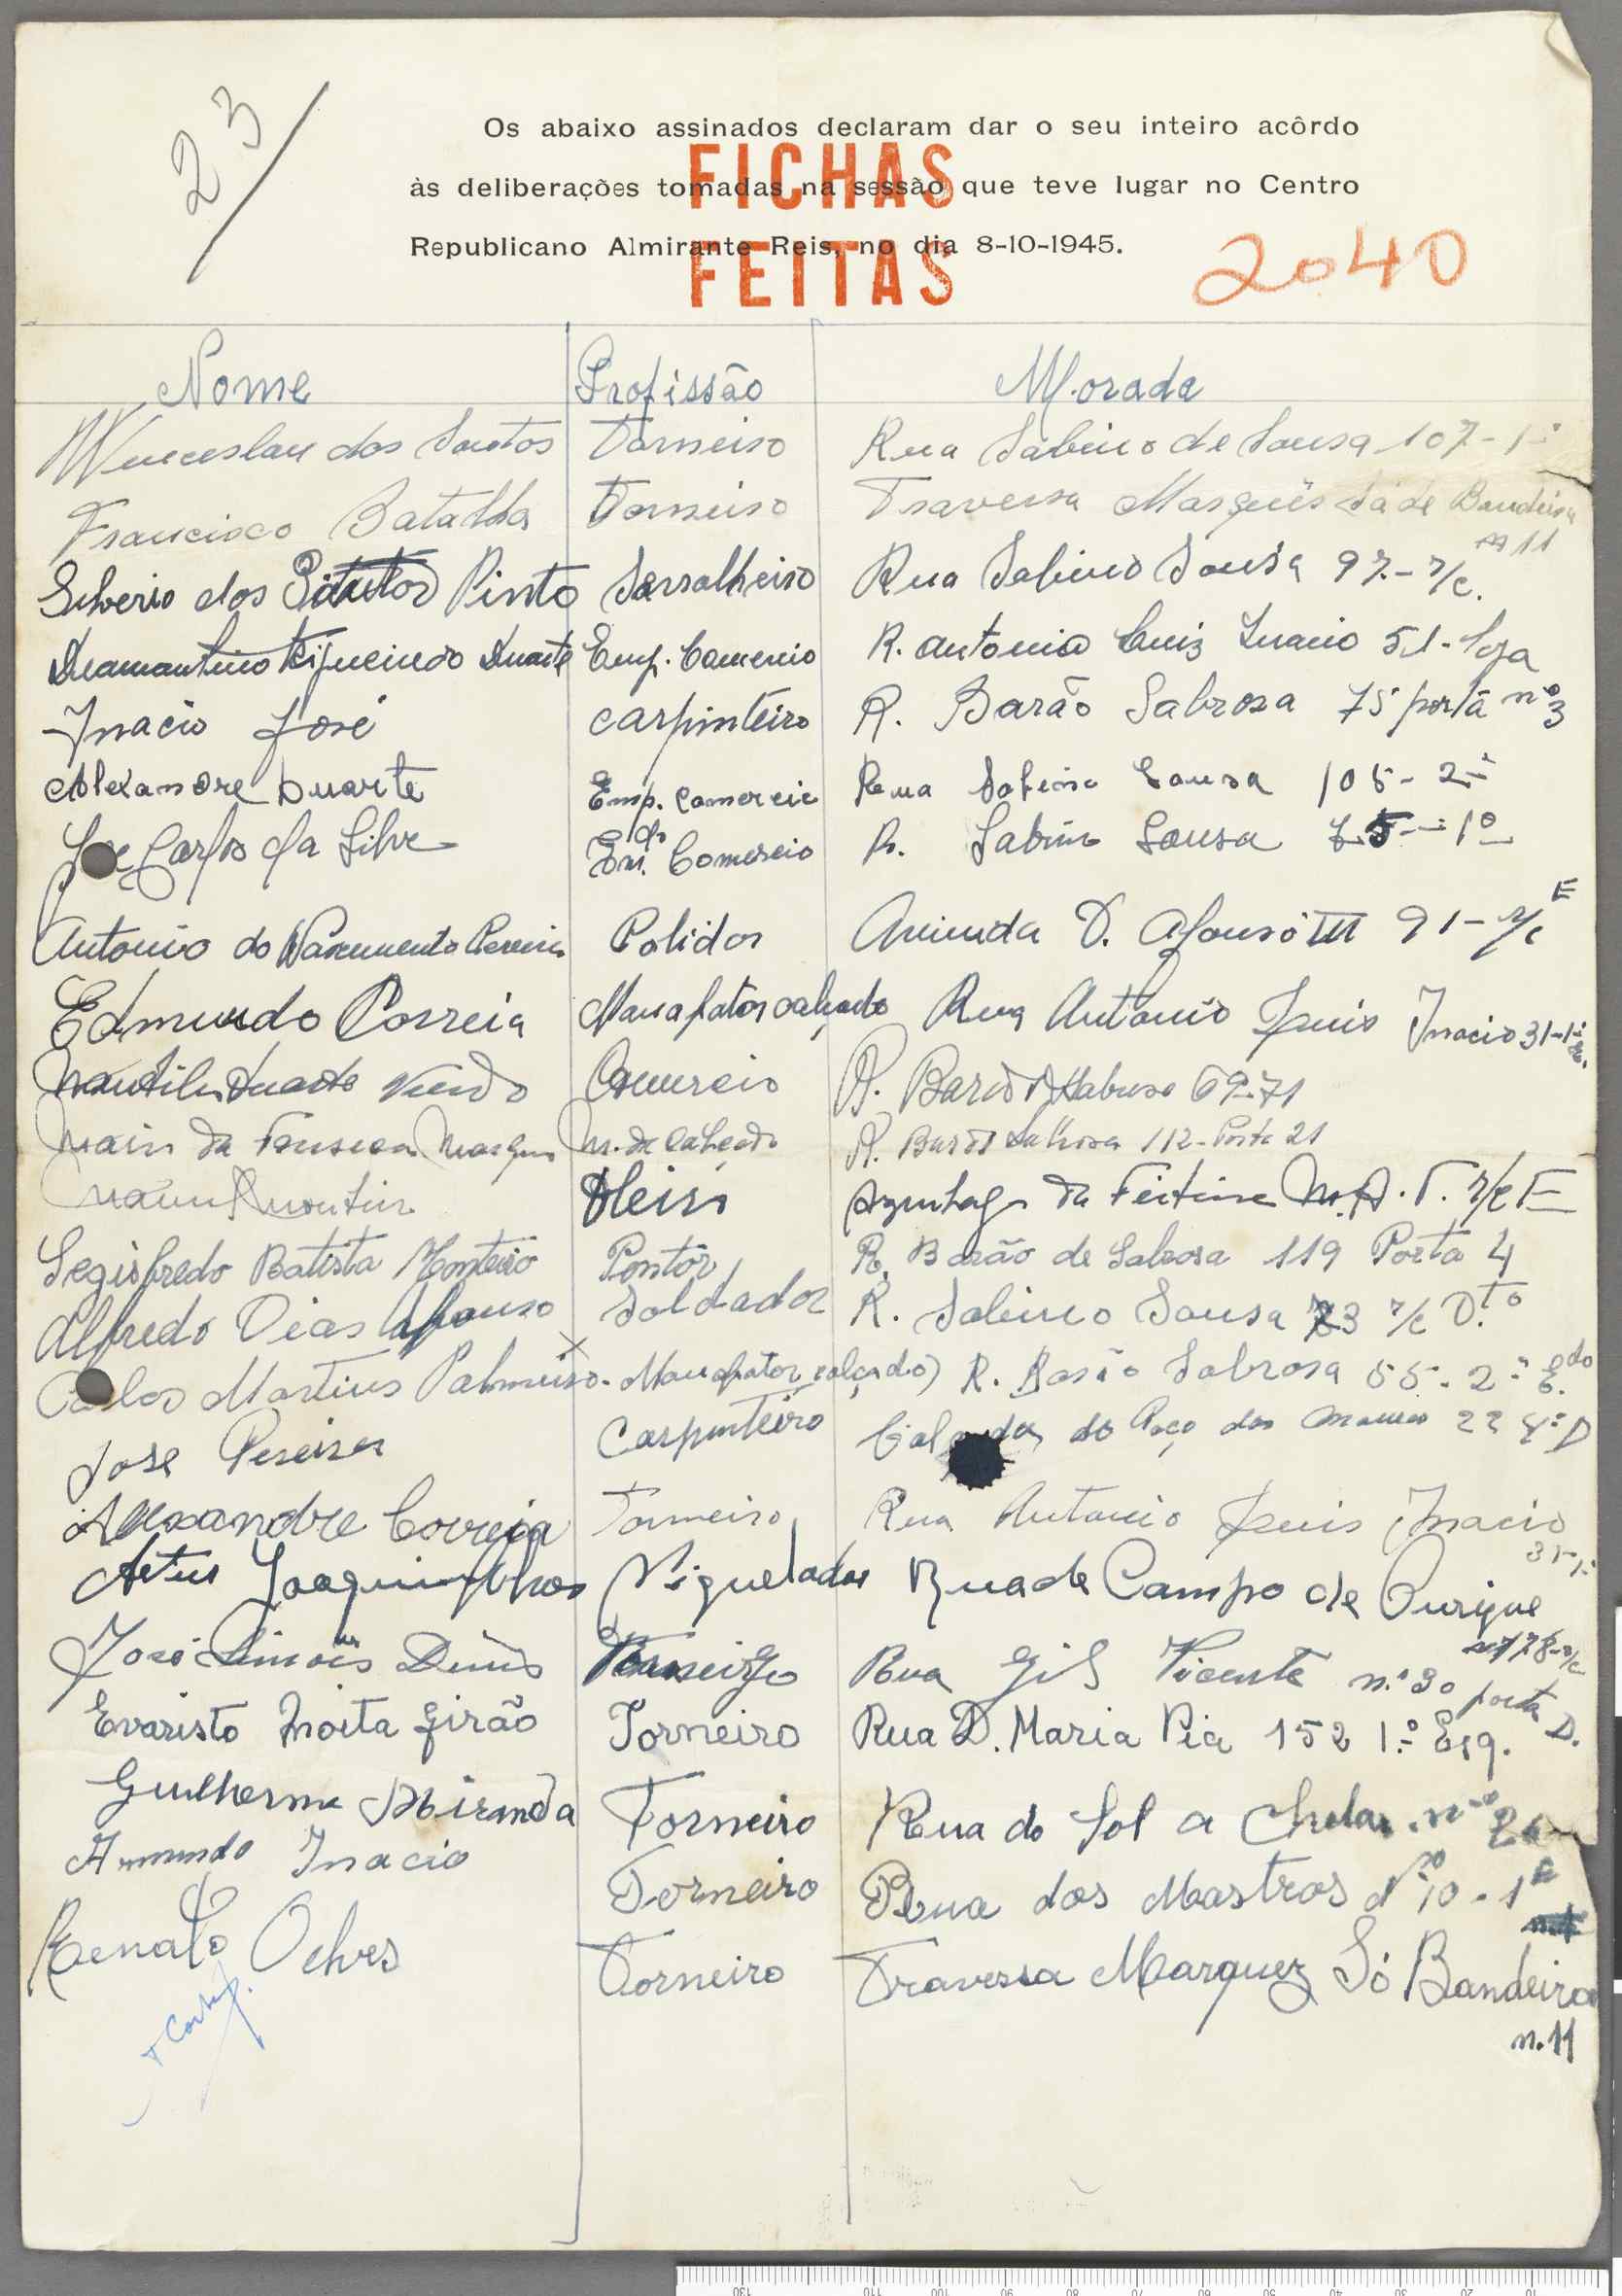 23
Os abaixo assinados declaram dar o seu inteiro acôrdo
às deliberações tomadas na sessão que teve lugar no Centro
Republicano Almirante Reis, no dia 8-10-1945.
FICHAS
FEITAS
2040
Nome Profissão Morada
Wenceslau dos Santos Torneiro Rua Sabino de Sousa 107-1º
Francisco Batalha Torneiro Travessa Marquês Sá de Bandeira
nº 11
Silverio dos Santos Pinto Serralheiro Rua Sabino Sousa 97-r/c.
Diamantino Figueiredo Duarte Emp. Comercio R. Antonio Luiz Inacio 51-loja
Inacio José carpinteiro R. Barão Sabrosa 75 porta nº 3
Alexandre Duarte Emp. Comercio Rua Sabino Sousa 105-2º
José Carlos da Silva Em. do Comercio R. Sabino Sousa 75-1º
Antonio do Nascimento Pereira Polidor Avinida D. Afonso III 91-r/c E
Edmundo Correia Manufator calçado Rua Antonio Luis Inacio 31-1º
Duarte Comercio R. Barão Sabrosa 69-71
da Fonseca Marques M. de Calçado R. Barão Sabrosa 112-Porta 21
Azinhaga da M.A.F. r/c E
Segisfredo Batista Monteiro Pintor R. Barão de Sabrosa 119 Porta 4
Alfredo Dias Afonso Soldador R. Sabino Sousa 73 r/c D.to
Carlos Martins Palmeiro. Manufator calçado) R. Barão Sabrosa 55-2º E.do
José Pereira Carpinteiro Calçada do Poço dos Mouros 22 4º D
Alexandre Correia Torneiro Rua Antonio Luis Inacio
31-1º
Artur Joaquim Niquelador Rua de Campo de Ourique
nº 178-r/c
José Simões Dinis Torneiro Rua Gil Vicente n.º 30 porta D.
Evaristo Moita Girão Torneiro Rua D. Maria Pia 152 1.º Esq.
Guilherme Miranda Torneiro Rua do Sol a Chelas nº
Armando Inacio Torneiro Rua dos Mastros Nº 10-1º
Renato Torneiro Travessa Marquez Sá Bandeira
n.11